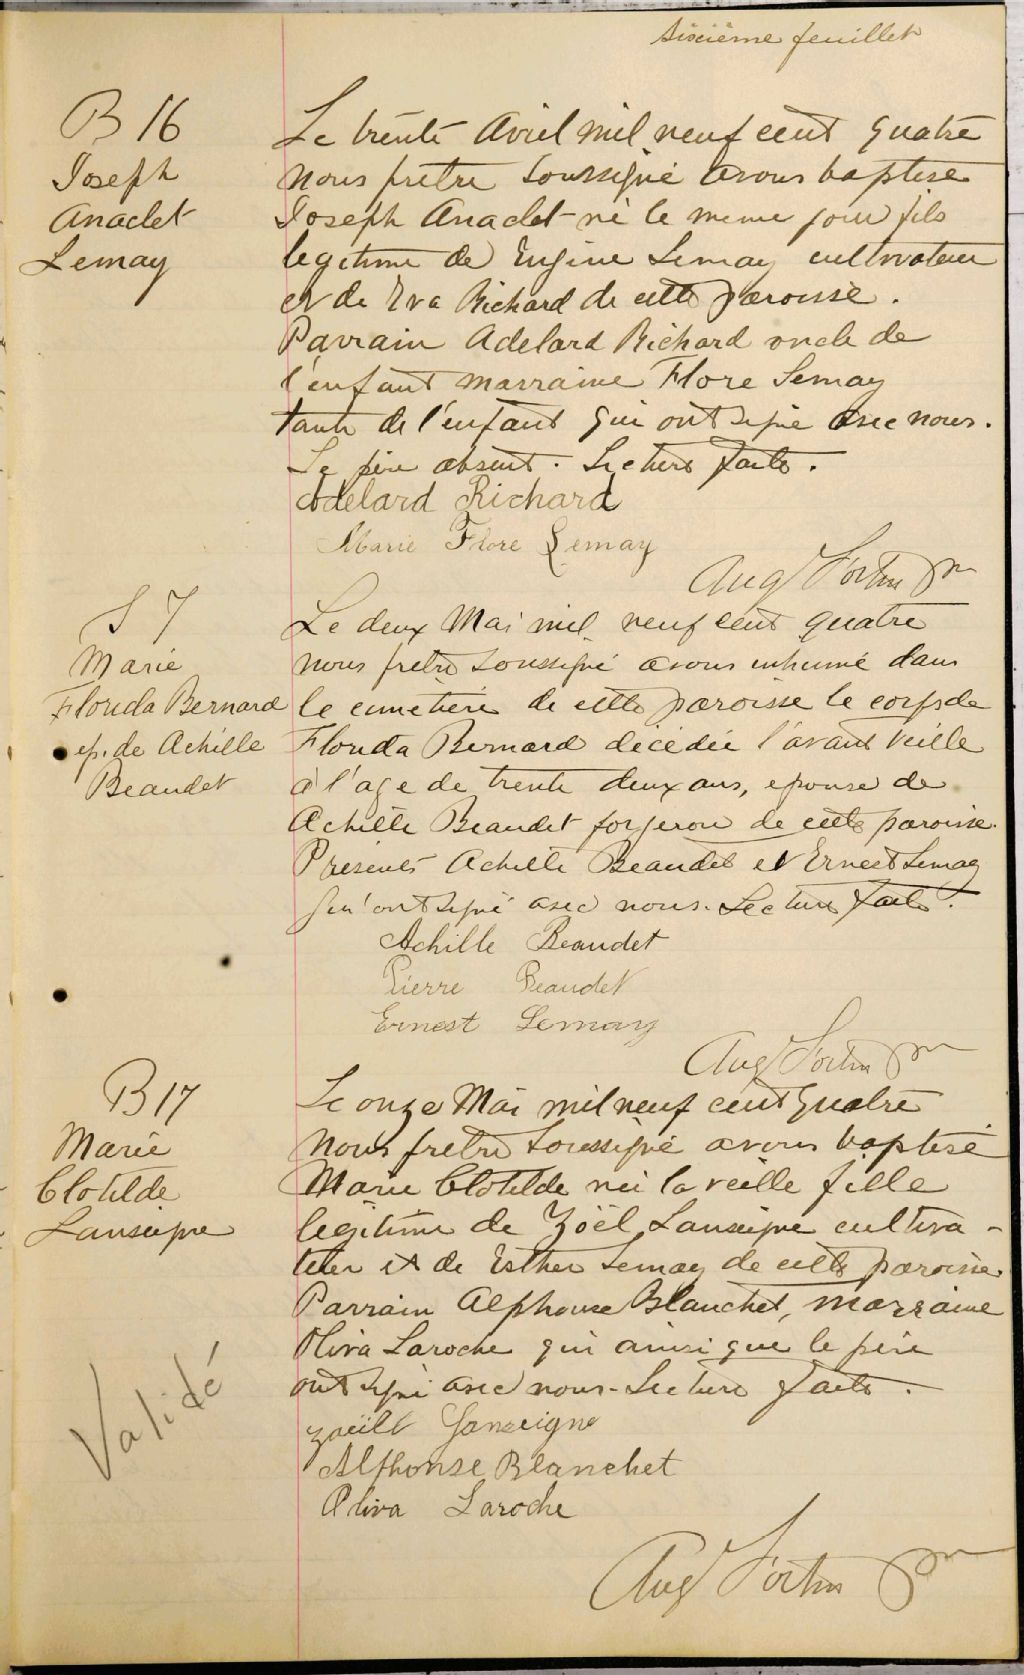 Sixième feuillet
B 16
Joseph
Anaclet
Lemay
Le trente Avril mil neuf cent quatre
nous prêtre soussigné avons baptisé
Joseph Anaclet né le même jour fils
légitime de Eugène Lemay cultivateur
et de Eva Richard de cette paroisse.
Parrain Adelard Richard oncle de
l'enfant marraine Flore Lemay
tante de l'enfant qui ont signé avec nous.
Le père absent. Lecture faite.
Adelard Richard
Marie Flore Lemay
Aug Fortin ptre
S 7
Marie
Florida Bernard
ep. de Achille
Beaudet
Le deux Mai mil neuf cent quatre
nous prêtre soussigné avons inhumé dans
le cimetière de cette paroisse le corps de
Florida Bernard décédée l'avant veille
à l'age de trente deux ans, epouse de
Achille Beaudet forgeron de cette paroisse.
Présents Achille Beaudet et Ernest Lemay
qui ont signé avec nous. Lecture faite.
Achille Beaudet
Pierre Beaudet
Ernest Lemay
Aug Fortin ptre
B 17
Marie
Clotilde
Lanseigne
Le onze Mai mil neuf cent quatre
Nous prêtre soussigné avons baptisé
Marie Clotilde née la veille fille
légitime de Zoël Lanseigne cultiva-
teur et de Esther Lemay de cette paroisse.
Parrain Alphonse Blanchet, marraine
Oliva Laroche qui ainsi que le père
ont signé avec nous. Lecture faite.
Zoëlt Lanseigne
Alphonse Blanchet
Oliva Laroche
Aug Fortin ptre
Validé